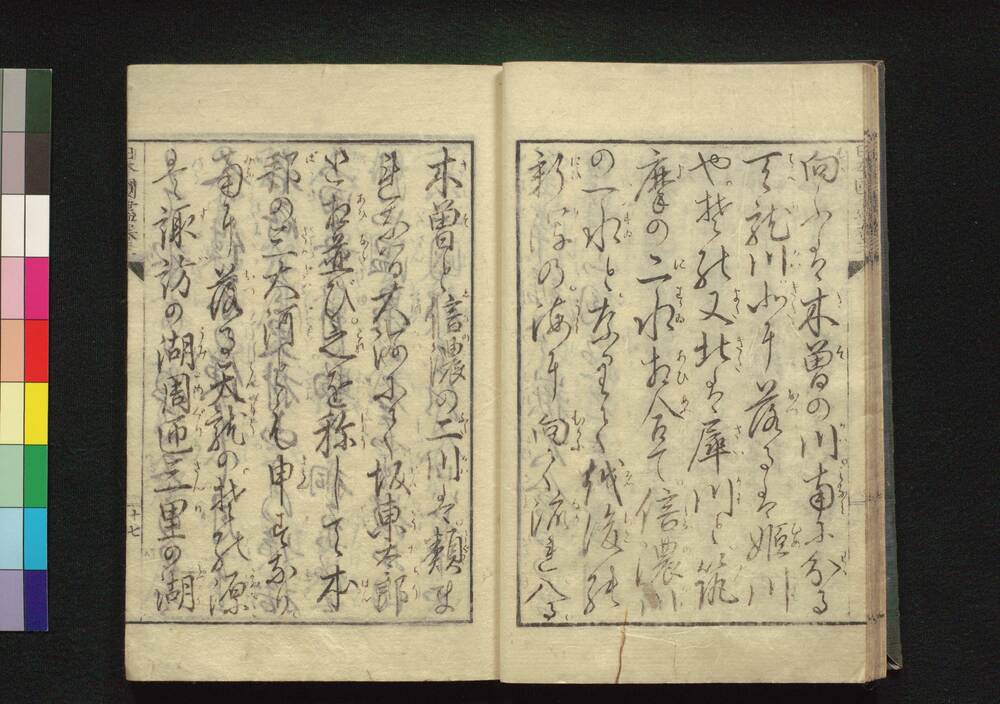 向ふは木曽の川南に分る
天龍川北に落るは姫川
や其外又北は犀川と筑
摩の二水相合て信濃川
の一水と成りて越後の
新潟の海に向て流れ入る
木曽と信濃の二川は類ま
れなる大河にて坂東太郎
と相並び之を称して本
邦の三大河とも申すなり
南に落る天龍の其水源
は諏訪の湖周匝三里の湖
十七